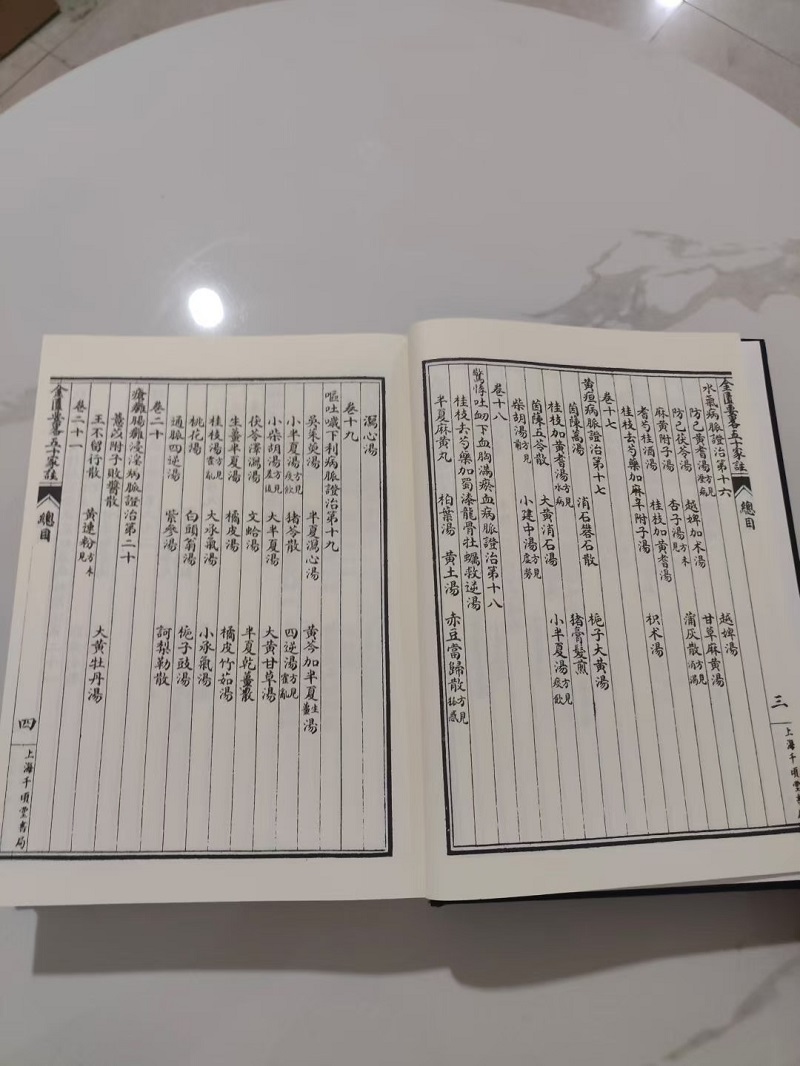 金匱要略五十家註 總目 三 上海千頃堂書局
水氣病脈證治第十六
防己黃耆湯方見溼病 越婢湯
防己茯苓湯 越婢加朮湯 甘草麻黃湯
麻黃附子湯 杏子湯方未見 蒲灰散方見消渴
耆芍桂酒湯 桂枝加黃耆湯
桂枝去芍藥加麻辛附子湯 枳朮湯
卷十七
黃疸病脈證治第十七
茵陳蒿湯 消石礬石散 梔子大黃湯
桂枝加黃耆湯方見水病 豬膏髮煎
茵陳五苓散 大黃消石湯 小半夏湯方見痰飲
柴胡湯方見 小建中湯方見虛勞
卷十八
驚悸吐衄下血胸滿瘀血病脈證治第十八
桂枝去芍藥加蜀漆龍骨牡蠣救逆湯
半夏麻黃丸 柏葉湯 黃土湯 赤豆當歸散方見狐惑
瀉心湯
卷十九
嘔吐噦下利病脈證治第十九
吳茱萸湯 半夏瀉心湯 黃芩加半夏生薑湯
小半夏湯方見痰飲 豬苓散 四逆湯方見霍亂
小柴胡湯方見差後 大半夏湯 大黃甘草湯
茯苓澤瀉湯 文蛤湯 半夏乾薑散
生薑半夏湯 橘皮湯 橘皮竹茹湯
桂枝湯方見霍亂 大承氣湯 小承氣湯
桃花湯 白頭翁湯 梔子豉湯
通脈四逆湯 紫參湯 訶梨勒散
卷二十
瘡癰腸癰浸淫病脈證治第二十
薏苡附子敗醬散
王不留行散 黃連粉方未見 大黃牡丹湯
卷二十一
金匱要略五十家註 總目 四 上海千頃堂書局